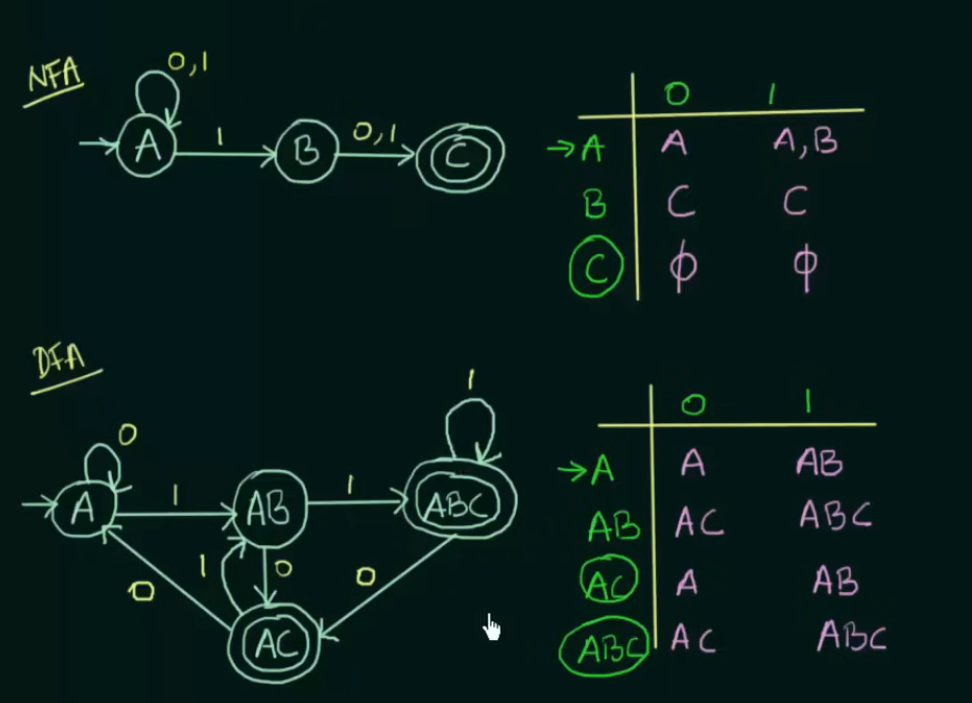 NFA
0,1
A 1 B 0,1 C
0 1
→A A A,B
B C C
C ϕ ϕ
DFA
0
1
A 1 AB 1 ABC
0 1 0 0
AC
0 1
→A A AB
AB AC ABC
AC A AB
ABC AC ABC